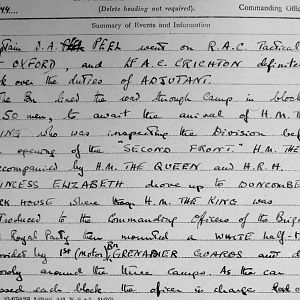 44.
(Delete heading not required).
Commanding Offic
Summary of Events and Information
ptain J.A. PEEL went on R.A.C. Tactical
OXFORD, and Lt A.C. CRICHTON definite
over the duties of ADJUTANT.
The Bn lined the road through Camp in block
50 men, to await the arrival of H.M. TH
ING who was inspecting the Division bef
opening of the "SECOND FRONT." H.M. THE
ccompanied by H.M. THE QUEEN and H.R.H.
INCESS ELIZABETH drove up to DUNCOMBE
RK HOUSE where H.M. THE KING was
troduced to the Commanding officers of the Brig
Royal Party then mounted a WHITE half-t
ovided by 1st (Motor) Bn GRENADIER GUARDS and d
owly around the three camps. As the car
ssed each block the officer in charge